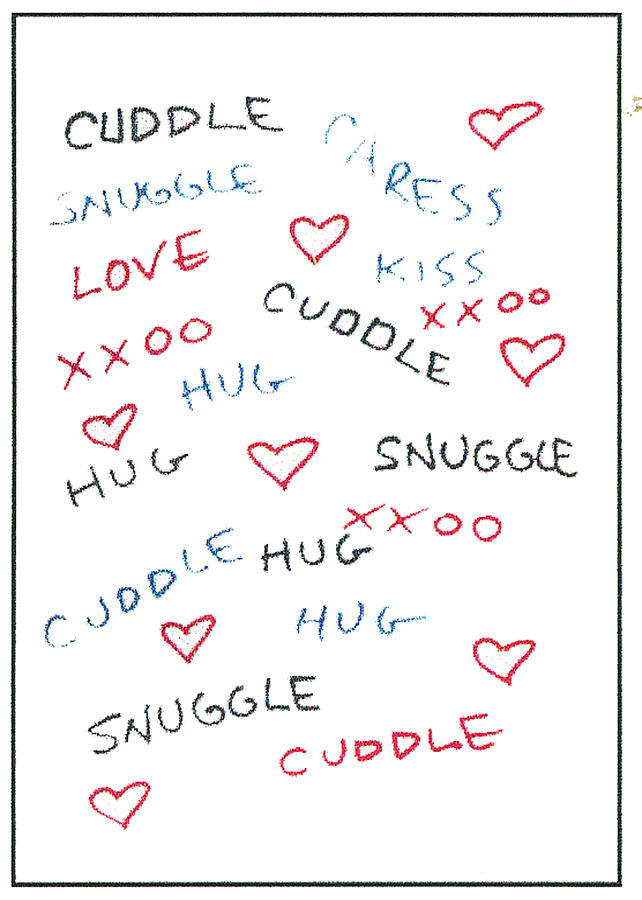 CUDDLE
CARESS
SNUGGLE
LOVE
KISS
CUDDLE
XXOO
XXOO
HUG
HUG
SNUGGLE
XXOO
CUDDLE
HUG
HUG
SNUGGLE
CUDDLE